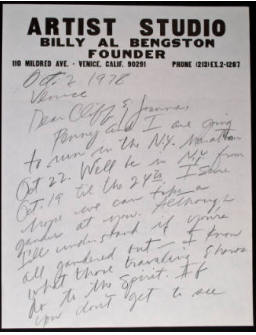 ARTIST STUDIO
BILLY AL BENGSTON
FOUNDER
110 MILDRED AVE. · VENICE, CALIF. 90291 PHONE (213) EX.2-1207
Oct. 2 1978
Venice
Dear Cliff & Joanna,
Penny and I are going
to run in the N.Y. Marathon
Oct 22. We'll be in N.Y. from
Oct 19 til the 24th. I sure
hope we can take a
gander at you. Although
I'll understand if you're
all gandered out — I know
what those traveling shows
do to the spirit. If
you don't get to see